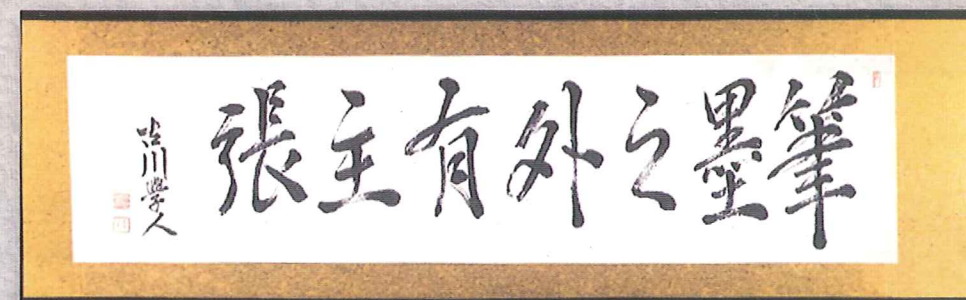 筆墨之外有主張
古川學人